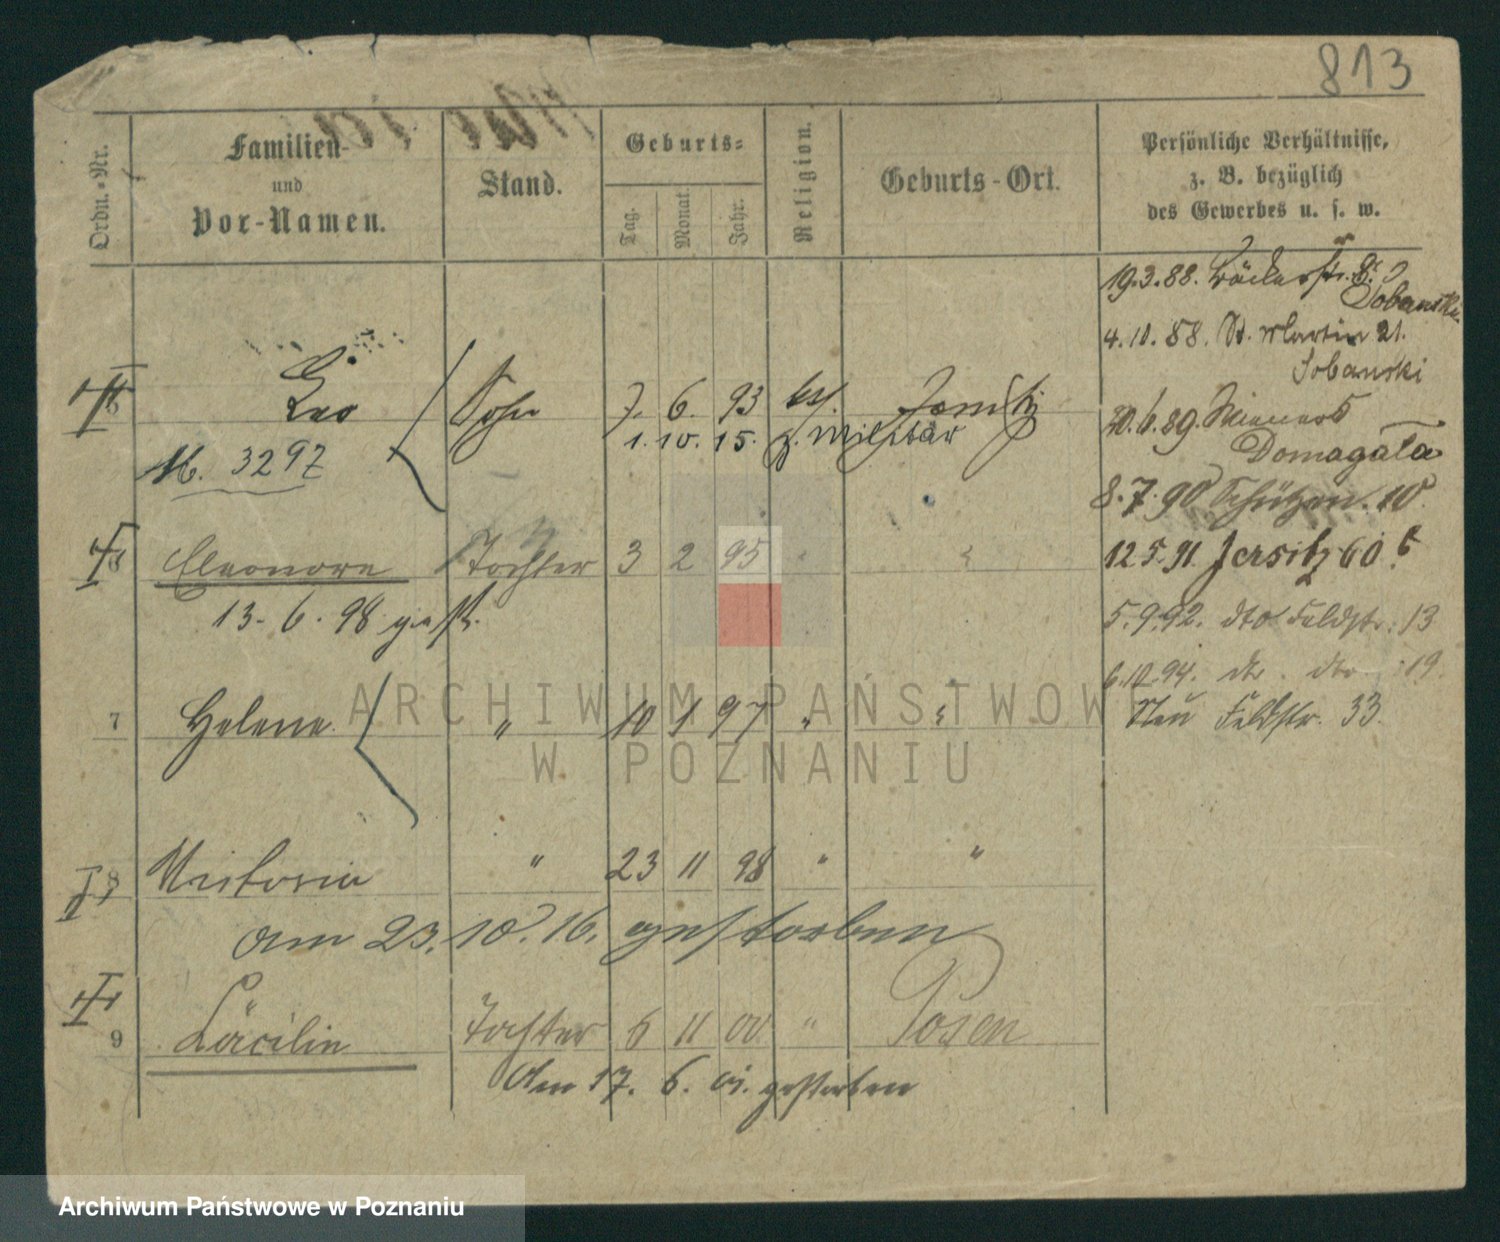 813
Ordn.-Nr.
Familien-
und
Vor-Namen.
Stand.
Geburts-
Tag.
Monat.
Jahr.
Religion.
Geburts-Ort.
Persönliche Verhältnisse,
z. B. bezüglich
des Gewerbes u. s. w.
19.3.88. Bäckerstr. 8.
Sobanski
4.10.88. St. Martin 21.
Sobanski
Leo Sohn 7. 6. 93
1. 10. 15. z. Militär
M. 3297
30.6.89.
Domagala
8.7.90 Schützen. 10
Eleonore Tochter 3 2 95 "
12 5. 91. Jersitz 60
13. 6. 98 gest.
5.9.92. dto Feldstr. 13
6.10.94. dto. dto 19.
7 Helene " 10 1 97 " "
Neu Feldstr. 33.
8 Victoria " 23 11 98 " "
am 23. 10. 16. gestorben
9 Cäcilie Tochter 6 11 00 " Posen
Am 17. 6. 01. gestorben
ARCHIWUM PAŃSTWOWE
W POZNANIU
Archiwum Państwowe w Poznaniu